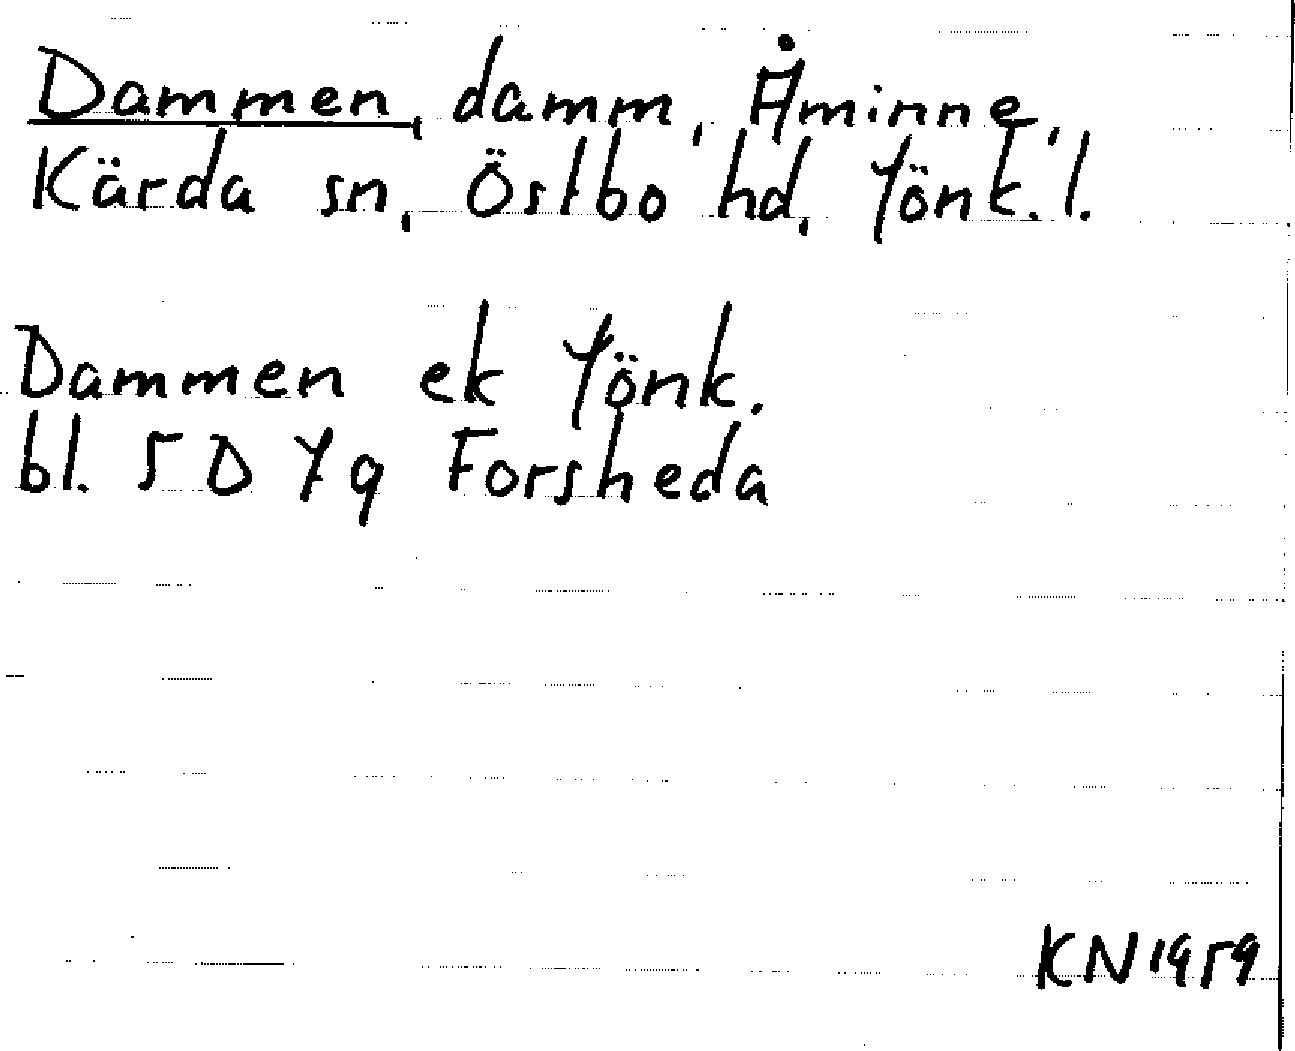 Dammen, damm, Åminne,
Kärda sn, Östbo hd, Jönk. l.
Dammen ek Jönk.
bl. 5 D 7g Forsheda
KN 1959